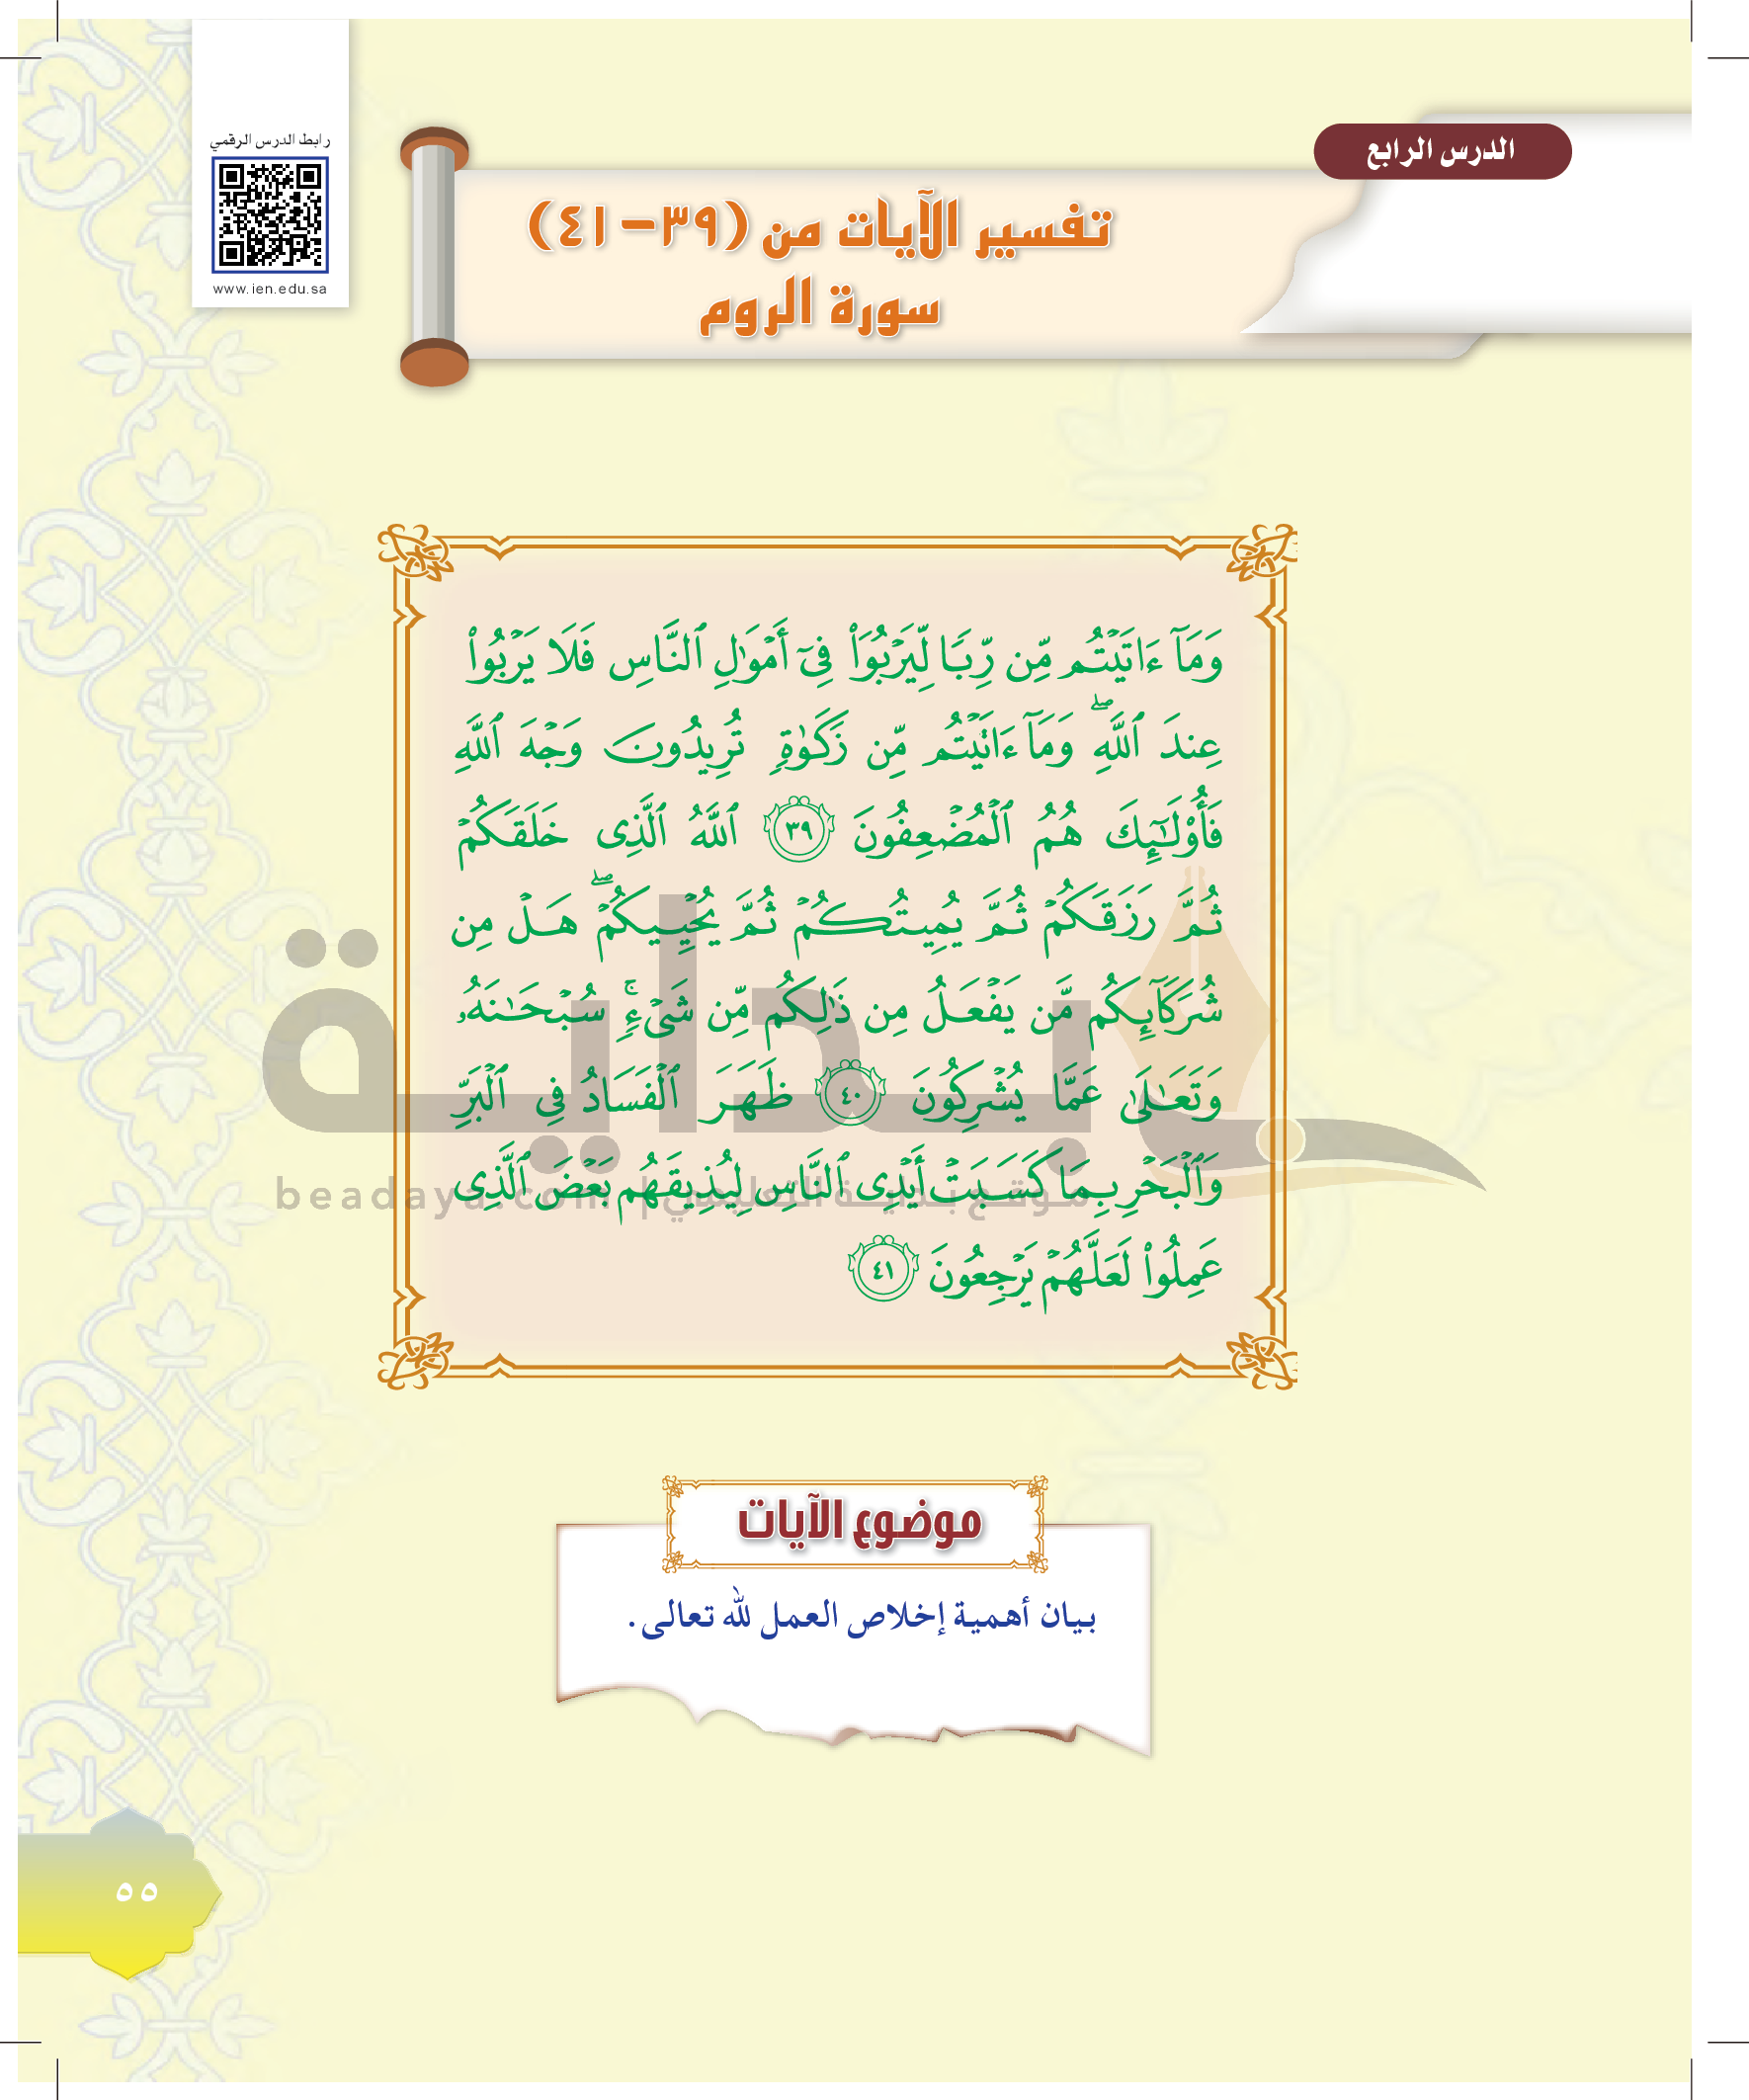 الدرس الرابع
رابط الدرس الرقمي
www.ien.edu.sa
تفسير الآيات من (٣٩-٤١)
سورة الروم
وَمَآ ءَاتَيۡتُم مِّن رِّبٗا لِّيَرۡبُوَاْ فِيٓ أَمۡوَٰلِ ٱلنَّاسِ فَلَا يَرۡبُواْ
عِندَ ٱللَّهِۖ وَمَآ ءَاتَيۡتُم مِّن زَكَوٰةٖ تُرِيدُونَ وَجۡهَ ٱللَّهِ
فَأُوْلَٰٓئِكَ هُمُ ٱلۡمُضۡعِفُونَ ٣٩ ٱللَّهُ ٱلَّذِي خَلَقَكُمۡ
ثُمَّ رَزَقَكُمۡ ثُمَّ يُمِيتُكُمۡ ثُمَّ يُحۡيِيكُمۡۖ هَلۡ مِن
شُرَكَآئِكُم مَّن يَفۡعَلُ مِن ذَٰلِكُم مِّن شَيۡءٖۚ سُبۡحَٰنَهُۥ
وَتَعَٰلَىٰ عَمَّا يُشۡرِكُونَ ٤٠ ظَهَرَ ٱلۡفَسَادُ فِي ٱلۡبَرِّ
وَٱلۡبَحۡرِ بِمَا كَسَبَتۡ أَيۡدِي ٱلنَّاسِ لِيُذِيقَهُم بَعۡضَ ٱلَّذِي
عَمِلُواْ لَعَلَّهُمۡ يَرۡجِعُونَ ٤١
بداية
موقع بداية التعليمي | beadaya.com
موضوع الآيات
بيان أهمية إخلاص العمل لله تعالى.
٥٥